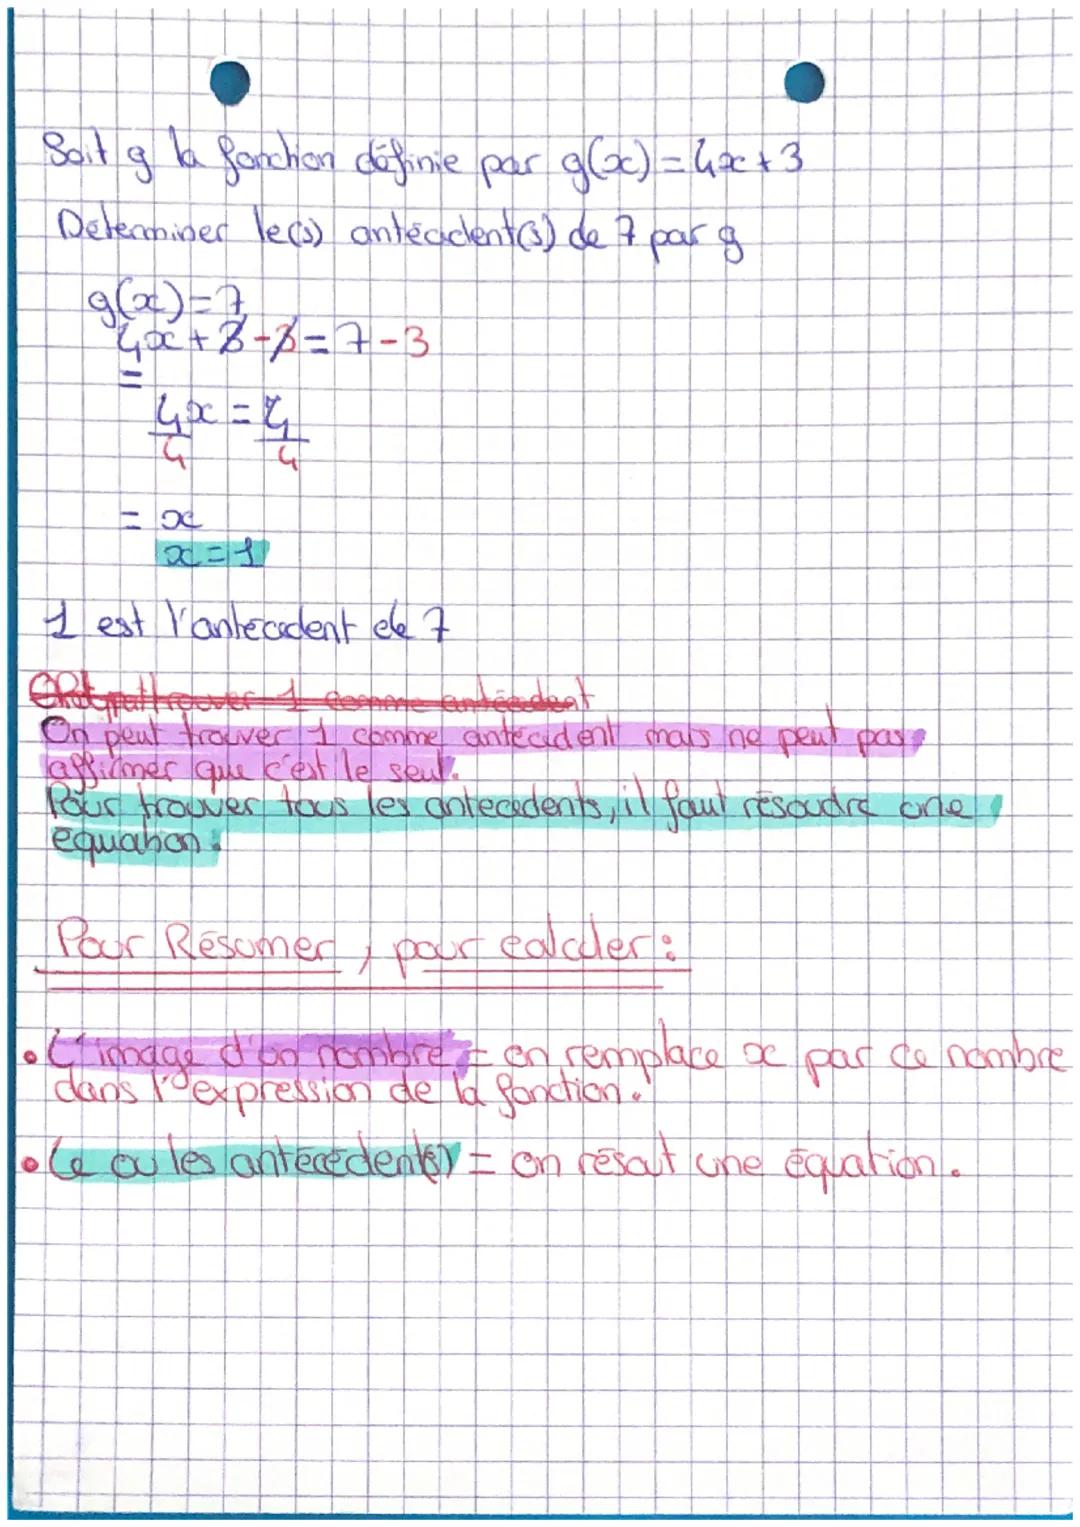 Soit g la fonction définie par g(x) = 4x + 3
Déterminer le(s) antécédent(s) de 7 par g
g(x) = 7
4x + 3 - 3 = 7 - 3
=
4x = 4
4 4
= x
x = 1
1 est l'antecedent de 7
trouver 1 comme antécédent
On peut trouver 1 comme antécédent mais ne peut pas
affirmer que c'est le seul.
Pour trouver tous les antecedents, il faut résoudre une
équation.
Pour Résumer, pour calculer :
• L'image d'un nombre = on remplace x par ce nombre
dans l'expression de la fonction.
• Le ou les antécédent(s) = on résout une équation.